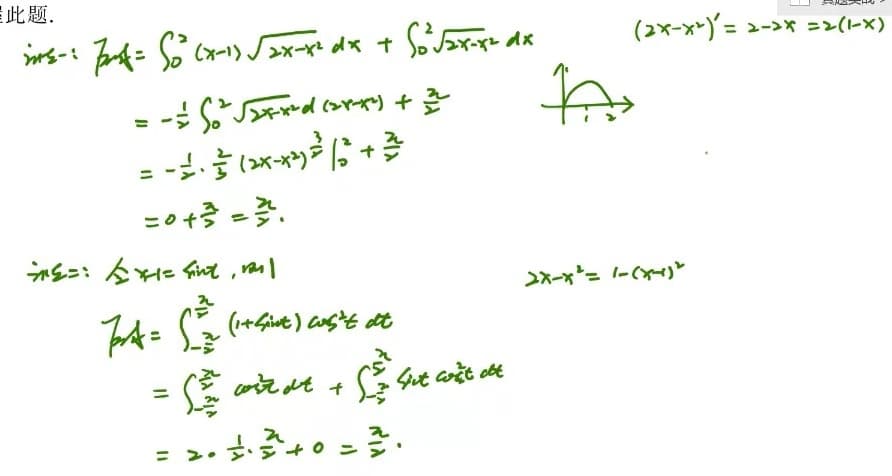 此题.
法一: 原式 = ∫₀² (x-1)√(2x-x²) dx + ∫₀² √(2x-x²) dx
(2x-x²)′ = 2-2x = 2(1-x)
= -1/2 ∫₀² √(2x-x²) d(2x-x²) + π/2
1 2
= -1/2 · 2/3 (2x-x²)^(3/2) |₀² + π/2
= 0 + π/2 = π/2.
法二: 令 x-1 = sint, 则
2x-x² = 1-(x-1)²
原式 = ∫_{-π/2}^{π/2} (1+sint) cos²t dt
= ∫_{-π/2}^{π/2} cos²t dt + ∫_{-π/2}^{π/2} sint cos²t dt
= 2 · 1/2 · π/2 + 0 = π/2.